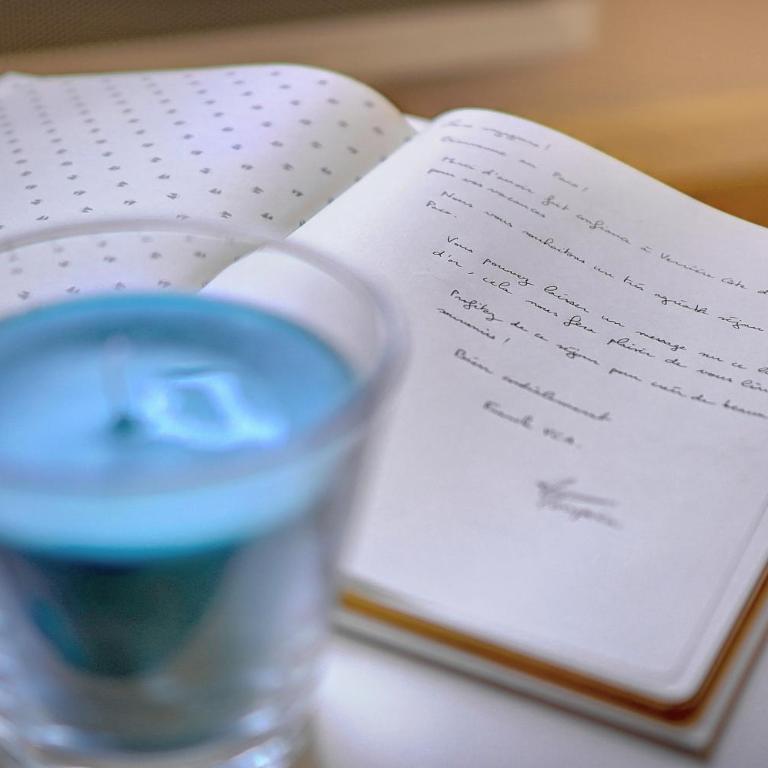 Bienvenue au Parc!
Merci d'avoir fait confiance à Vernière Côte d
pour vos vacances
Nous vous souhaitons un très agréable séjour
Parc.
Vous pouvez laisser un message sur ce li
d'or, cela nous fera plaisir de vous lire
Profitez de ce séjour pour créer de beaux
souvenirs!
Bien cordialement